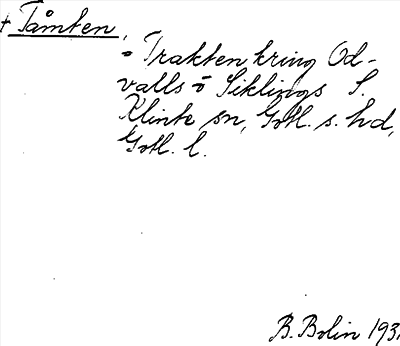 + Tåmten,
• Trakten kring Od-
valls o Siklings S.
Klinte sn, Gotl. s. hd,
Gotl. l.
B. Bolin 193